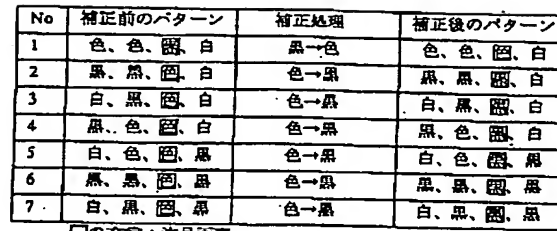 No 補正前のパターン 補正処理 補正後のパターン
1 色、色、黒、白 黒→色 色、色、色、白
2 黒、黒、色、白 色→黒 黒、黒、黒、白
3 白、黒、色、白 色→黒 白、黒、黒、白
4 黒、色、色、白 色→黒 黒、色、黒、白
5 白、色、色、黒 色→黒 白、色、黒、黒
6 黒、黒、色、黒 色→黒 黒、黒、黒、黒
7 白、黒、色、黒 色→黒 白、黒、黒、黒